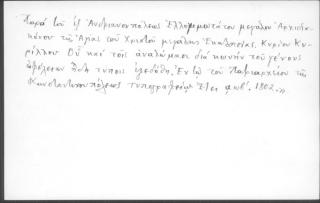 Παρὰ τοῦ ἐξ Ἀνδριανουπόλεως Ἐλλογιμωτάτου μεγάλου Ἀρχιδια-
κόνου τῆς Ἁγίας τοῦ Χριστοῦ μεγάλης Ἐκκλησίας, Κυρίου Κυ-
ρίλλου. Οὗ καὶ τοῖς ἀναλώμασι διὰ κοινὴν τοῦ γένους
ὠφέλειαν τύποις ἐξεδόθη. Ἐν τῷ τοῦ Πατριαρχείου τῆς
Κωνσταντινουπόλεως τυπογραφείῳ. Ἔτει αωβ΄. 1802.»